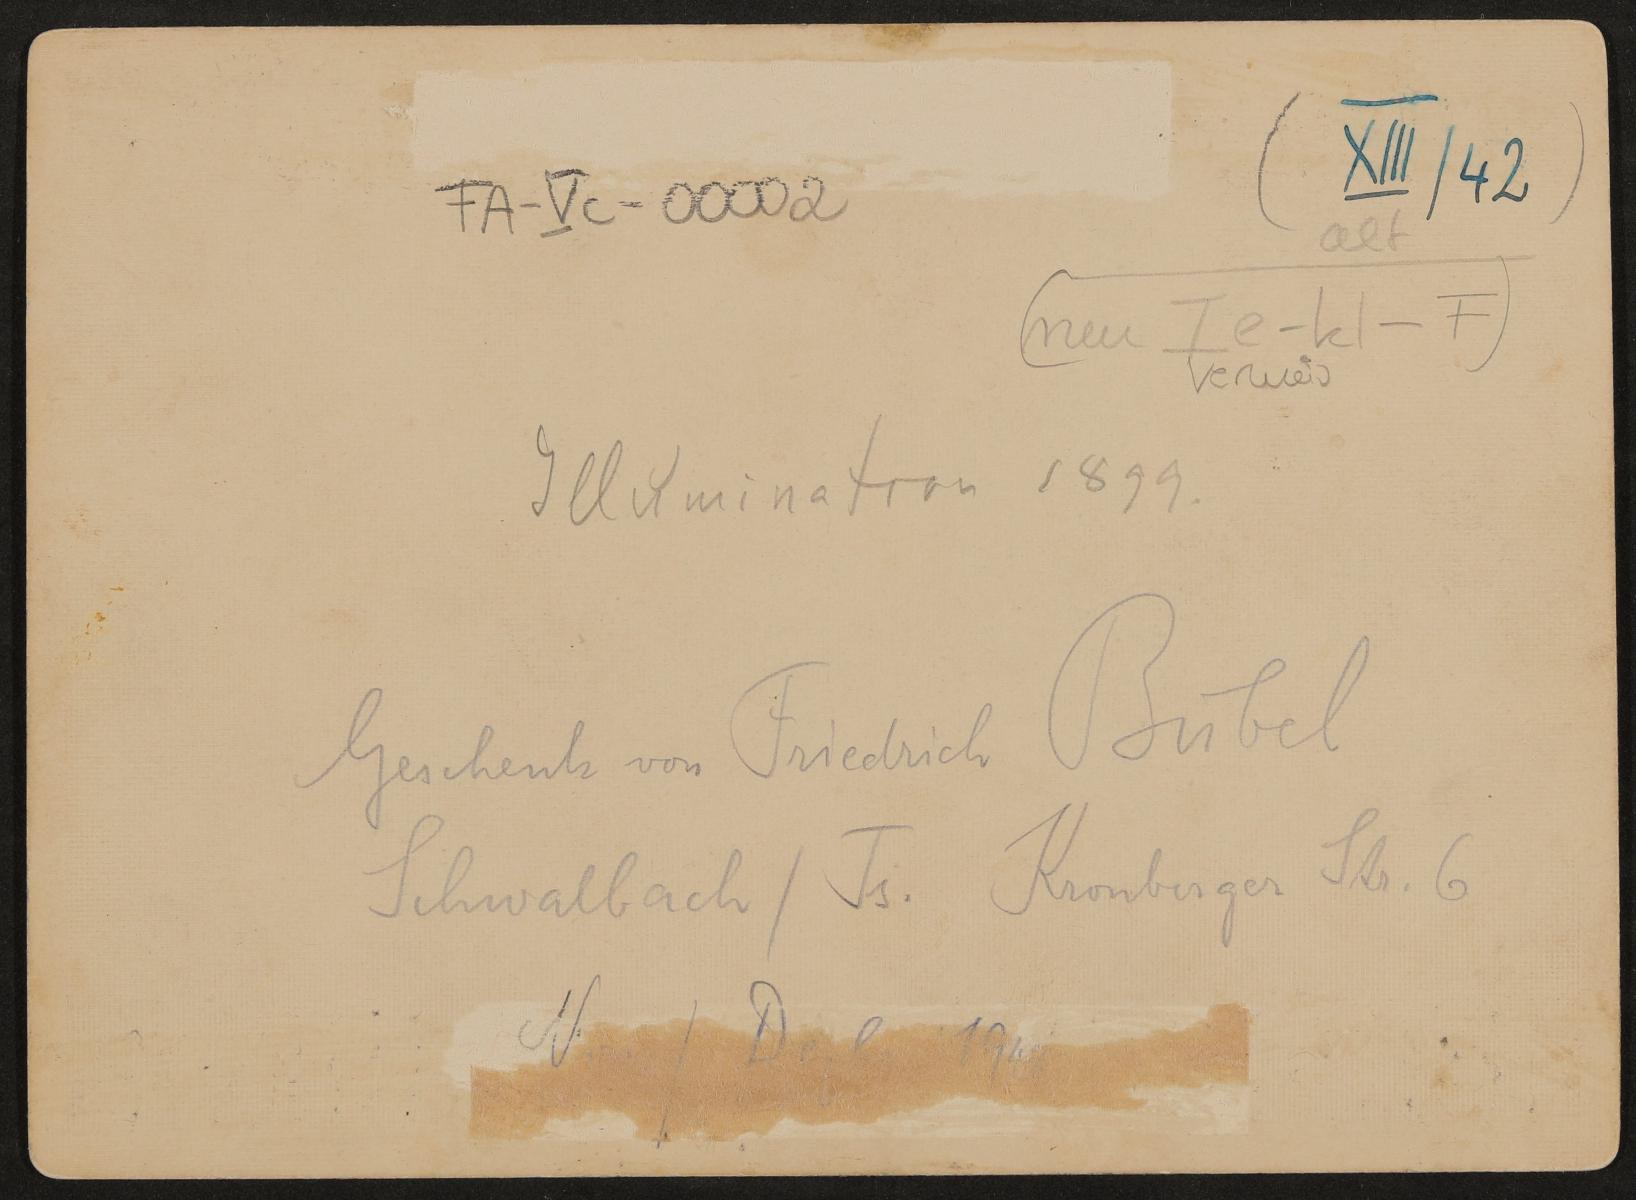 FA-Vc-00002
(XIII/42)
alt
(neu Ie-kl-F)
Verweis
Illumination 1899.
Geschenk von Friedrich Bübel
Schwalbach / Ts. Kronberger Str. 6